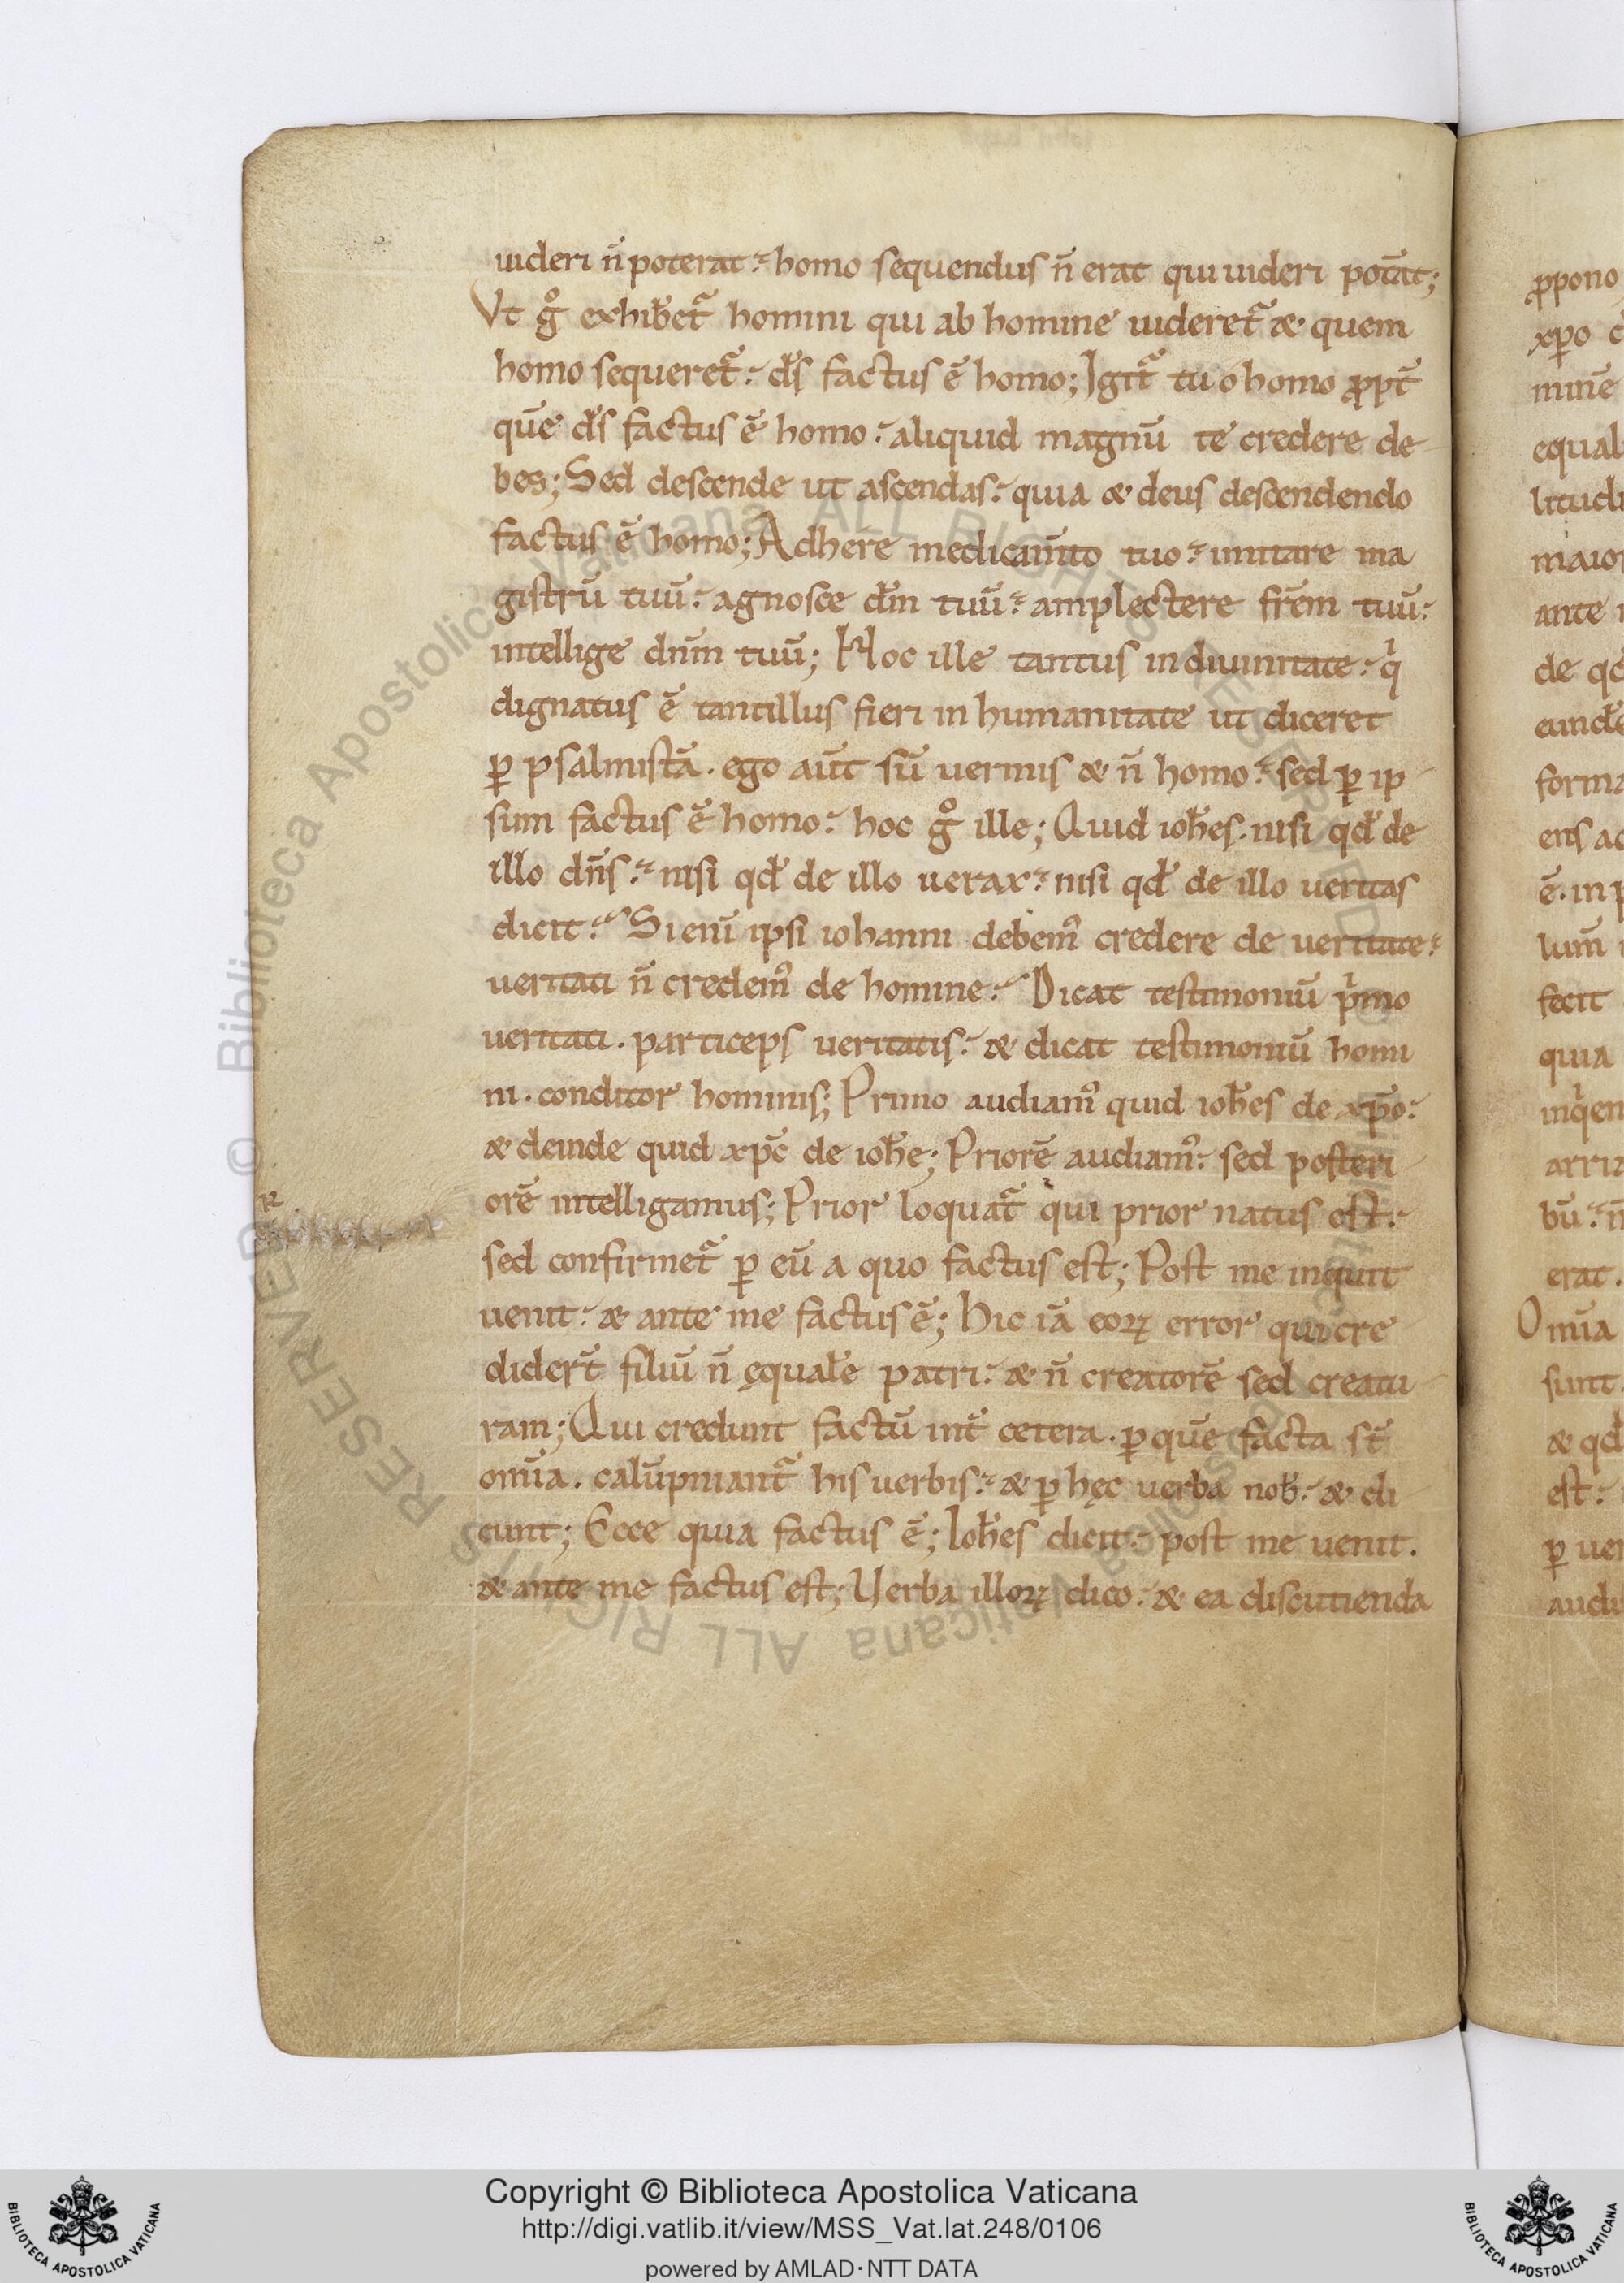 uideri n̄ poterat. homo sequendus n̄ erat qui uideri pot̄at;
Vt g̊ exhibet᷑ homini qui ab homine uideret᷑ & quem
homo sequeret᷑. d̄s factus ē homo; Igit᷑ tu o homo ꝓpt̄
quē d̄s factus ē homo. aliquid magnū te credere de
bes; Sed descende ut ascendas. quia & deus descendendo
factus ē homo; Adhere medicam̄to tuo. imitare ma
gistrū tuū. agnosce d̄m tuū. amplectere fr̄em tuū.
intellige dn̄m tuū; Hoc ille tantus in diuinitate. qⁱ
dignatus ē tantillus fieri in humanitate ut diceret
ꝑ psalmistā. ego aūt sū uermis & n̄ homo. sed ꝑ ip
sum factus ē homo. hoc g̊ ille; Quid ioh̄es. nisi qđ de
illo dn̄s. nisi qđ de illo uerax. nisi qđ de illo ueritas
dicit. Si enī ipsi iohanni debem᷒ credere de ueritate.
ueritati n̄ credem᷒ de homine. Dicat testimoniū pⁱmo
ueritati. particeps ueritatis. & dicat testimoniū homi
ni. conditor hominis; Primo audiam᷒ quid ioh̄es de xp̄o.
& deinde quid xp̄c de ioh̄e; Priorē audiam᷒. sed posteri
orē intelligamus; Prior loquat᷑ qui prior natus est.
sed confirmet᷑ ꝑ eū a quo factus est; Post me inquit
uenit. & ante me factus ē; Hic iā eoꝝ error qui cre
didert̄ filiū n̄ ęqual̄e patri. & n̄ creatorē sed creatu
ram; Qui credunt factū int̄ cetera. ꝑ quē facta st̄
om̄ia. calūpniant᷑ his uerbis. & ꝑ hęc uerba nob̄. & di
cunt; Ecce quia factus ē; Ioh̄es dicit. post me uenit.
& ante me factus est; Verba illoꝝ dico. & ea discutienda
R
ꝓpono
xp̄o
minē
equal
litudi
maior
ante
de
eund̄e
forma
ens
ē. in
lum̄
fecit
quia
inqⁱen
arria
bū.
erat.
Om̄ia
sunt
& qđ
est.
ꝑ uer
audi
© Biblioteca Apostolica Vaticana ALL RIGHTS RESERVED
© Biblioteca Apostolica Vaticana ALL RIGHTS RESERVED
Copyright © Biblioteca Apostolica Vaticana
http://digi.vatlib.it/view/MSS_Vat.lat.248/0106
powered by AMLAD·NTT DATA
BIBLIOTECA APOSTOLICA VATICANA
BIBLIOTECA APOSTOLICA VATICANA